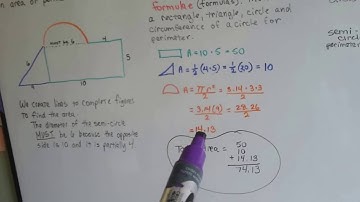 formulae (formulas).
a rectangle, triangle, circle and
circumference of a circle for
perimeter.
semi-
circle
perimeter
must be 6
4
5
5
4
10
A = 10 · 5 = 50
A = 1/2 (4·5) = 1/2 (20) = 10
A = πr²/2 = 3.14 · 3 · 3/2
= 3.14(9)/2 = 28.26/2
= 14.13
area = 50
10
+ 14.13
74.13
We create lines to complete figures
to find the area.
The diameter of the semi-circle
MUST be 6 because the opposite
side is 10 and it is partially 4.